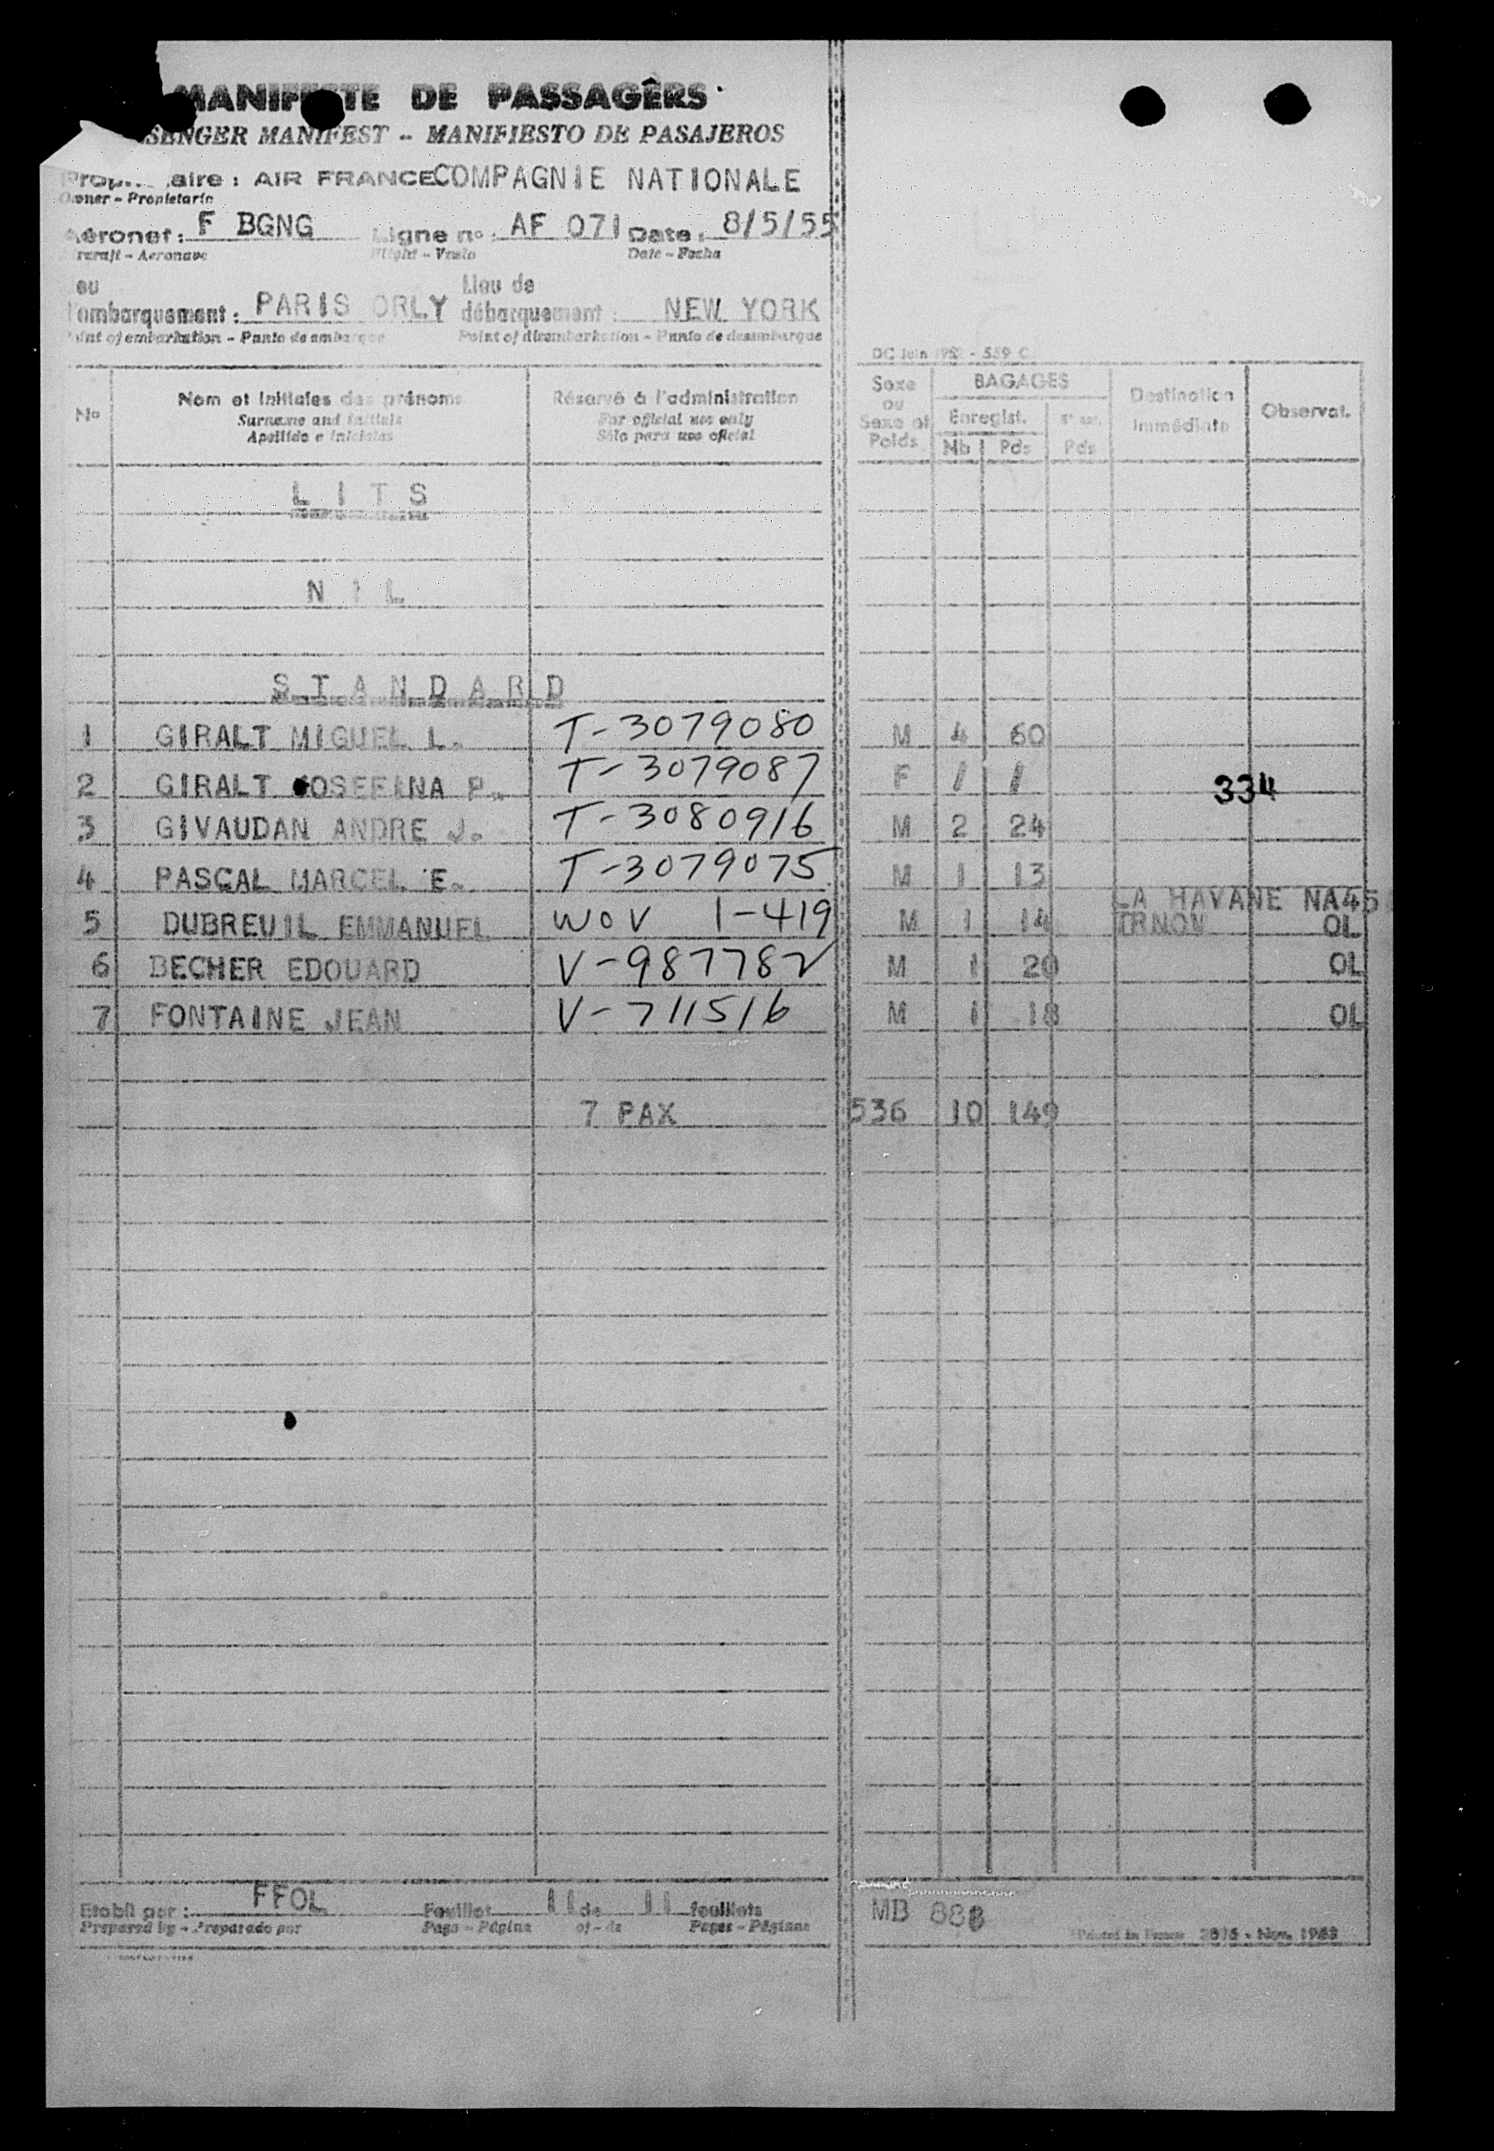 MANIFESTE DE PASSAGÊRS
SENGER MANIFEST - MANIFIESTO DE PASAJEROS
aire : AIR FRANCE COMPAGNIE NATIONALE
Owner - Propietario
Aéronef : F BGNG Ligne n° : AF 071 Date : 8/5/55
Aeronave Flight - Vuelo Date - Fecha
Lieu de
embarquement : PARIS ORLY débarquement : NEW YORK
Point of embarkation - Punto de embarque Point of disembarkation - Punto de desembarque
DC Juin 559 C
N° Nom et initiales des prénoms Réservé à l'administration Sexe ou Sexe et Poids BAGAGES Destination Immédiate Observat.
Surname and initials For official use only Enregist.
Apellido e iniciales Sólo para uso oficial Nb Pds Pds
L I T S
N I L
S T A N D A R D
1 GIRALT MIGUEL L. T-3079080 M 4 60
2 GIRALT JOSEFINA P. T-3079087 F / / 334
3 GIVAUDAN ANDRE J. T-3080916 M 2 24
4 PASCAL MARCEL E. T-3079075 M 1 13
LA HAVANE NA45
5 DUBREUIL EMMANUEL WOV 1-419 M 1 14 OL
6 BECHER EDOUARD V-987782 M 1 20 OL
7 FONTAINE JEAN V-711516 M 1 18 OL
7 PAX 536 10 149
Etabli par : FFOL Feuillet 11 de 11 feuillets MB 888
Prepared by - Preparado por Page - Página of - de Pages - Páginas Printed in France